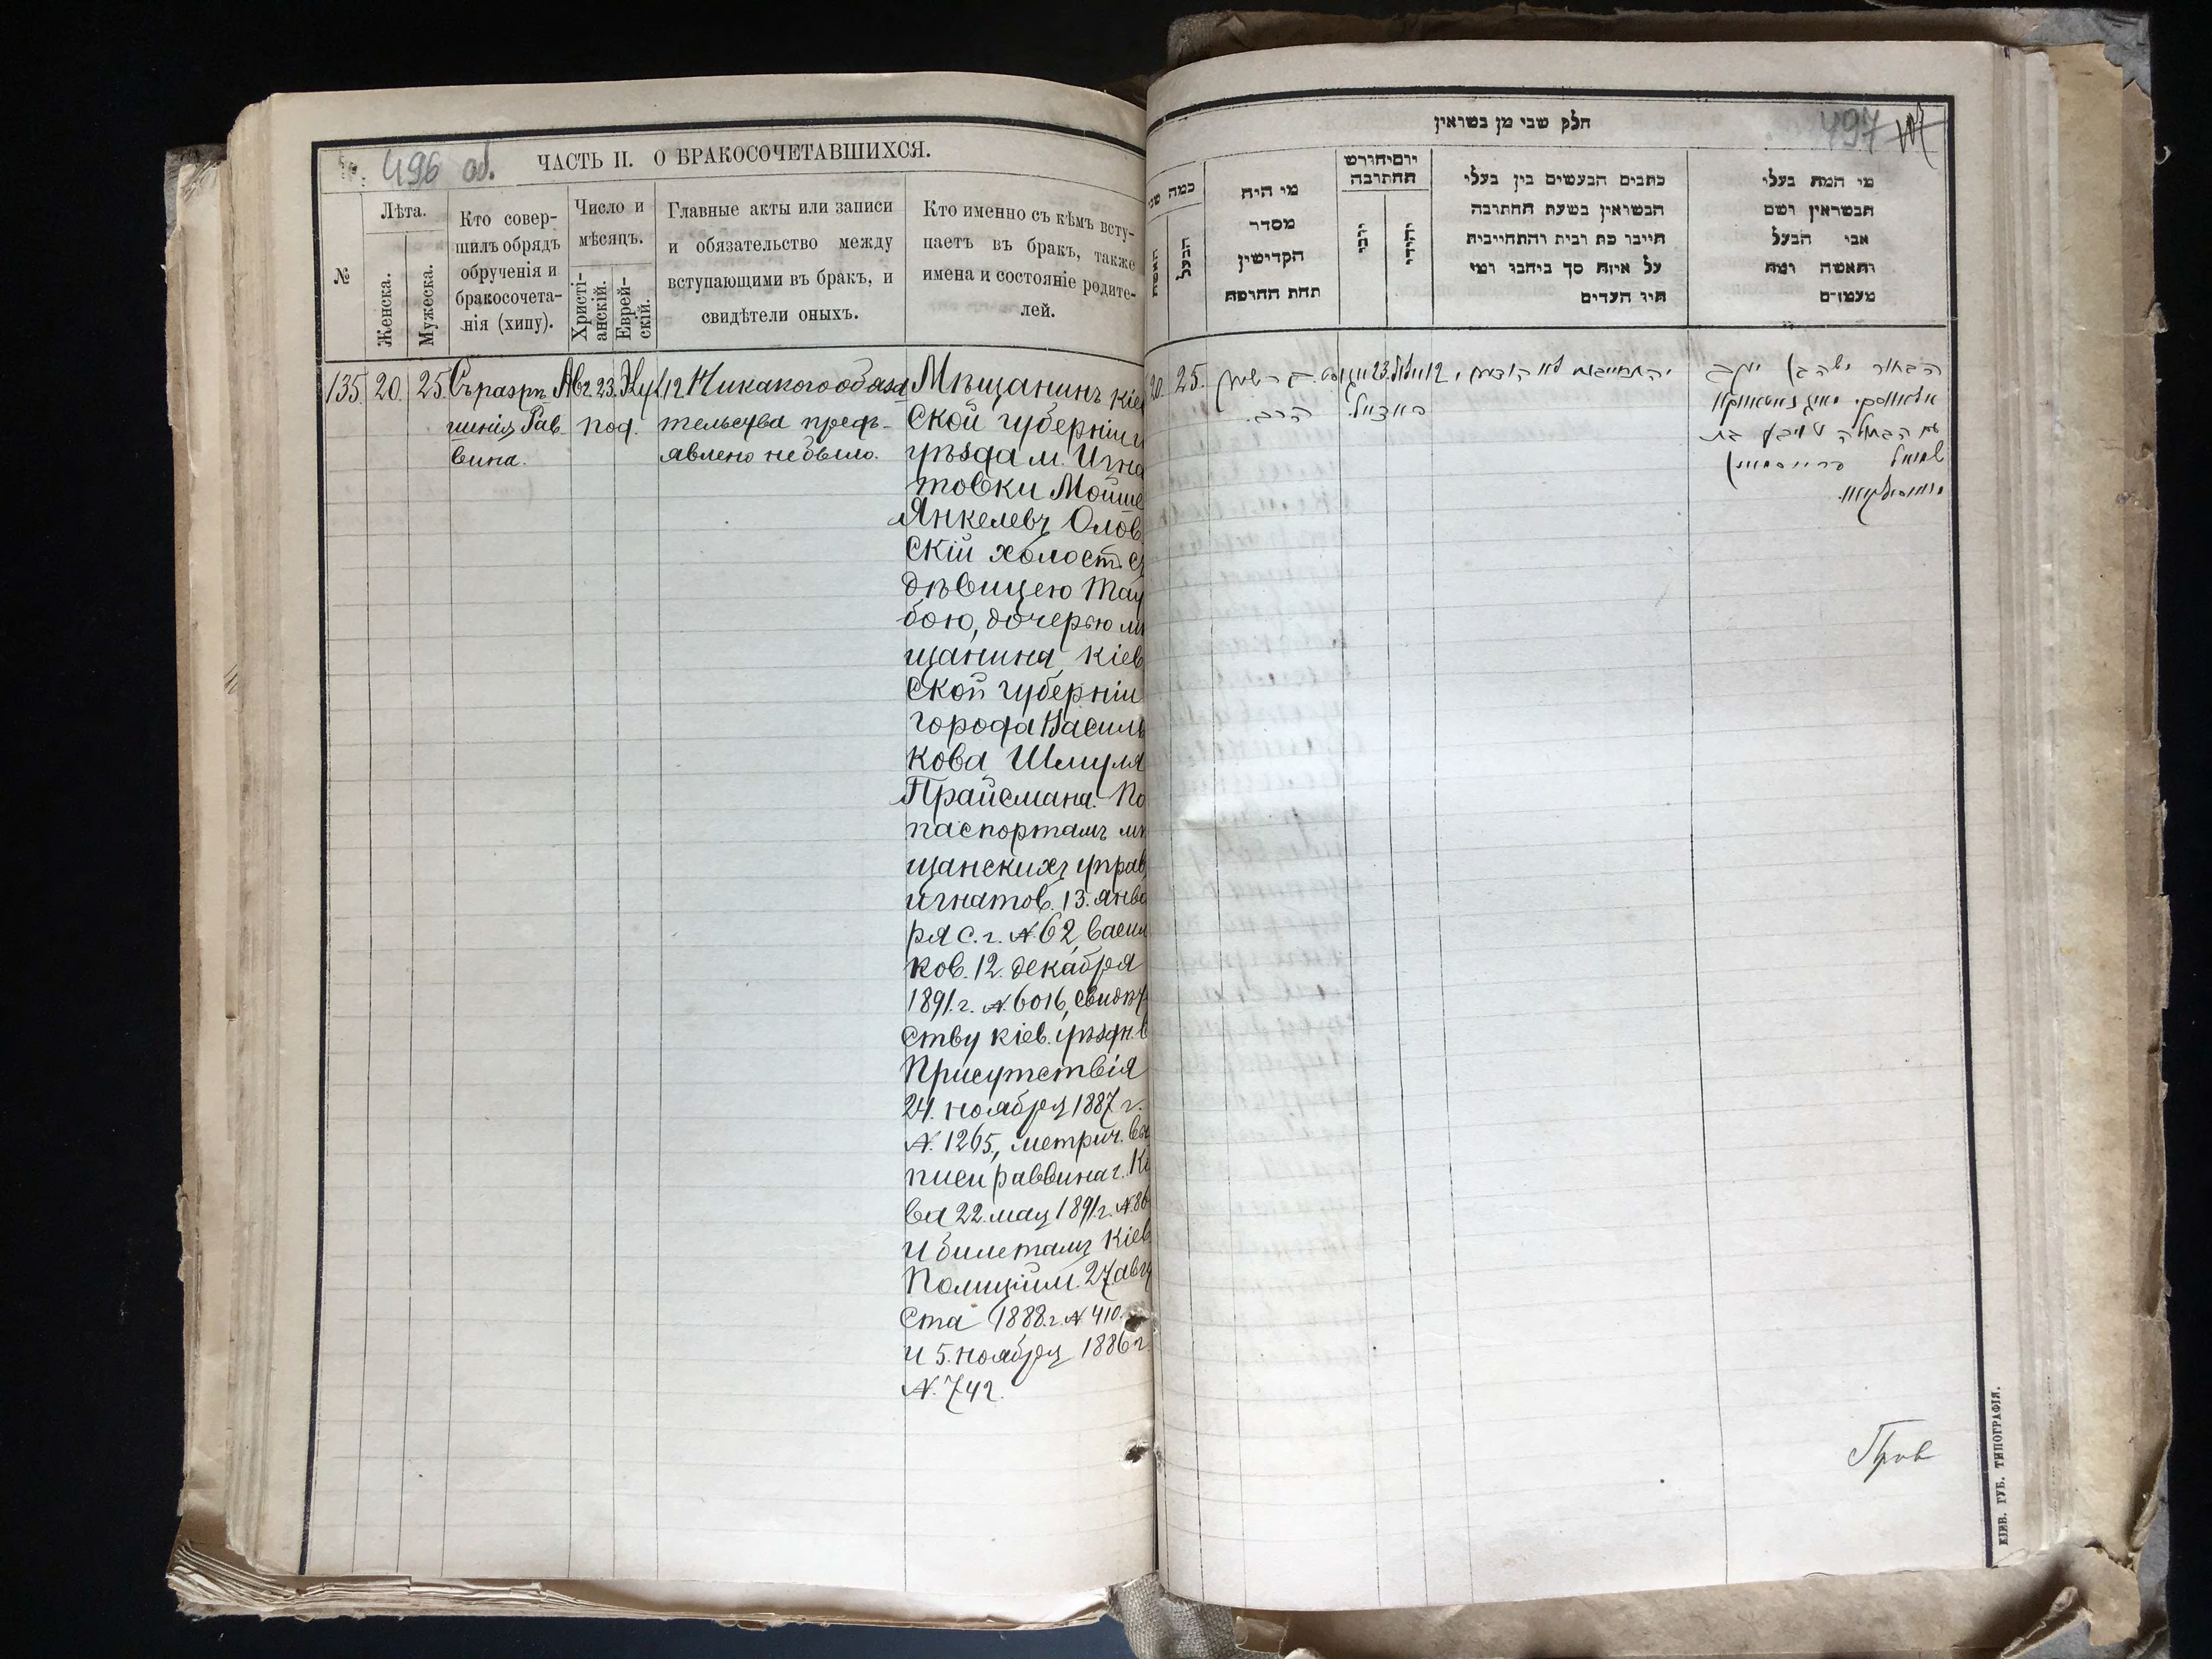 496 об.
ЧАСТЬ II. О БРАКОСОЧЕТАВШИХСЯ.
№
Лѣта.
Женска.
Мужеска.
Кто совер-
шилъ обрядъ
обрученія и
бракосочета-
нія (хипу).
Число и
мѣсяцъ.
Христі-
анскій.
Еврей-
скій.
Главные акты или записи
и обязательство между
вступающими въ бракъ, и
свидѣтели оныхъ.
Кто именно съ кѣмъ всту-
паетъ въ бракъ, также
имена и состояніе родите-
лей.
135. 20. 25. Съ разрѣ
шенія Рав
вина.
Авг 23.
под.
12
Никакого обяза
тельства предъ-
явлено не было.
Мѣщанинъ Кіев
ской губерніи и
уѣзда м. Игна
товки Мойше
Янкелевъ Олов
скій холост. съ
дѣвицею Тау
бою, дочерью мѣ
щанина Кіев
ской губерніи
города Василь
кова Шмуля
Прайсмана. По
паспортамъ мѣ
щанскихъ управ
игнатов. 13. янва
ря с. г. № 62, васил
ков. 12. декабря
1891. г. № 6016, свидѣт
ству кіев. уѣздн. в
Присутствія
24. ноября 1887 г.
№. 1265, метрич. вы
писи раввина г. Кі
ва 22. мая 1891. г. № 86
и билетамъ Кіев
Полиціи. 27. авгу
ста 1888. г. № 410.
и 5. ноября 1886 г.
№. 742.
497
חלק שני מן נשואין
כמה שני
האשה
הבעל
מי היה
מסדר
הקדישין
תחת החופה
יום וחודש
החתונה
יוני
יהודי
כתבים הנעשים בין בעלי
הנשואין בשעת החתונה
חייבו כת ובית והתחייבות
על איזה סך ביחבו ומי
היו העדים
מי המה בעלי
הנשואין ושם
אבי הבעל
והאשה ומה
מעמדם
20. 25.
הרב.
23
12
הבחור משה בן יעקב
עם הבתולה טויבע בת
שמואל פרייסמאן
Грав
КІЕВ. ГУБ. ТИПОГРАФІЯ.